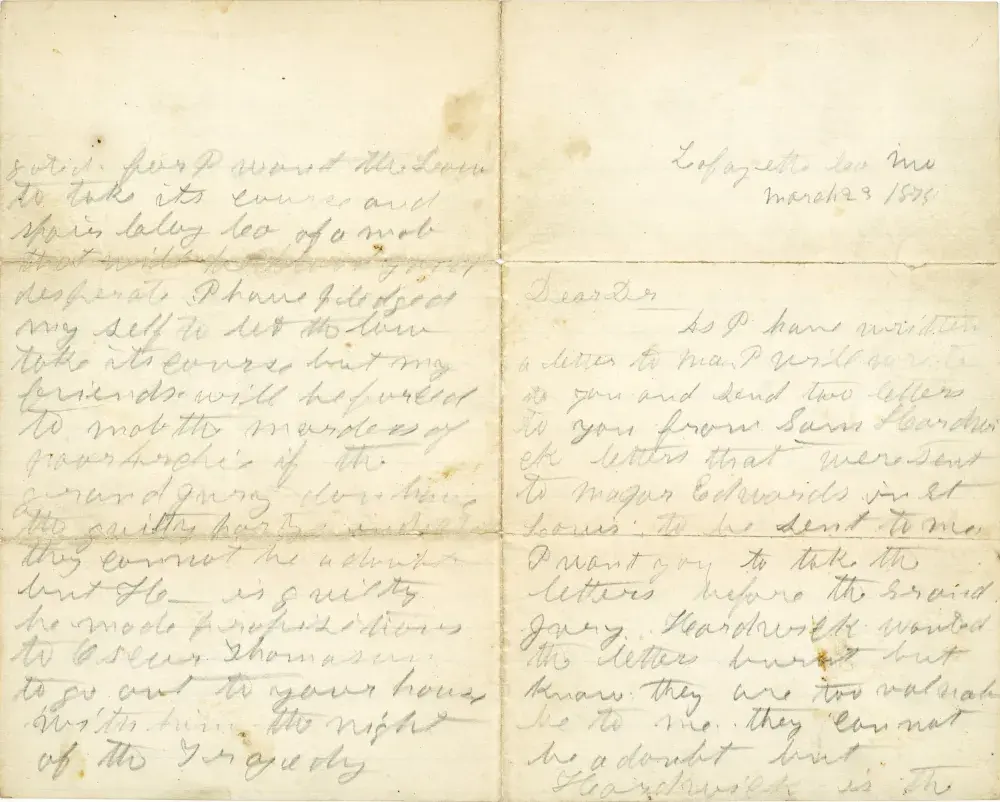 Lafayette Co Mo
March 23 1875
Dear Dr
As I have written
a letter to ma I will write
to you and send two letters
to you from Sam Hardwi
ck letters that were sent
to magor Edwards in St
Louis to be sent to me
I want you to take the
letters before the Grand
Jury. Hardwick wanted
the letters burnt but
know they are too valuab
le to me. they cannot
be a doubt but
Hardwick is the
for I want the Law
to take its course and
Clay Co of a mob
that will
desperate I have pledged
my self to let the law
take its course but my
friends will be forced
to mob the murders of
poor Archie if the
grand Jury dont have
the guilty party
they cannot be a doubt
but H_ is guilty
he made propositions
to Oscur Thomason
to go out to your house
with him the night
of the Tragedy